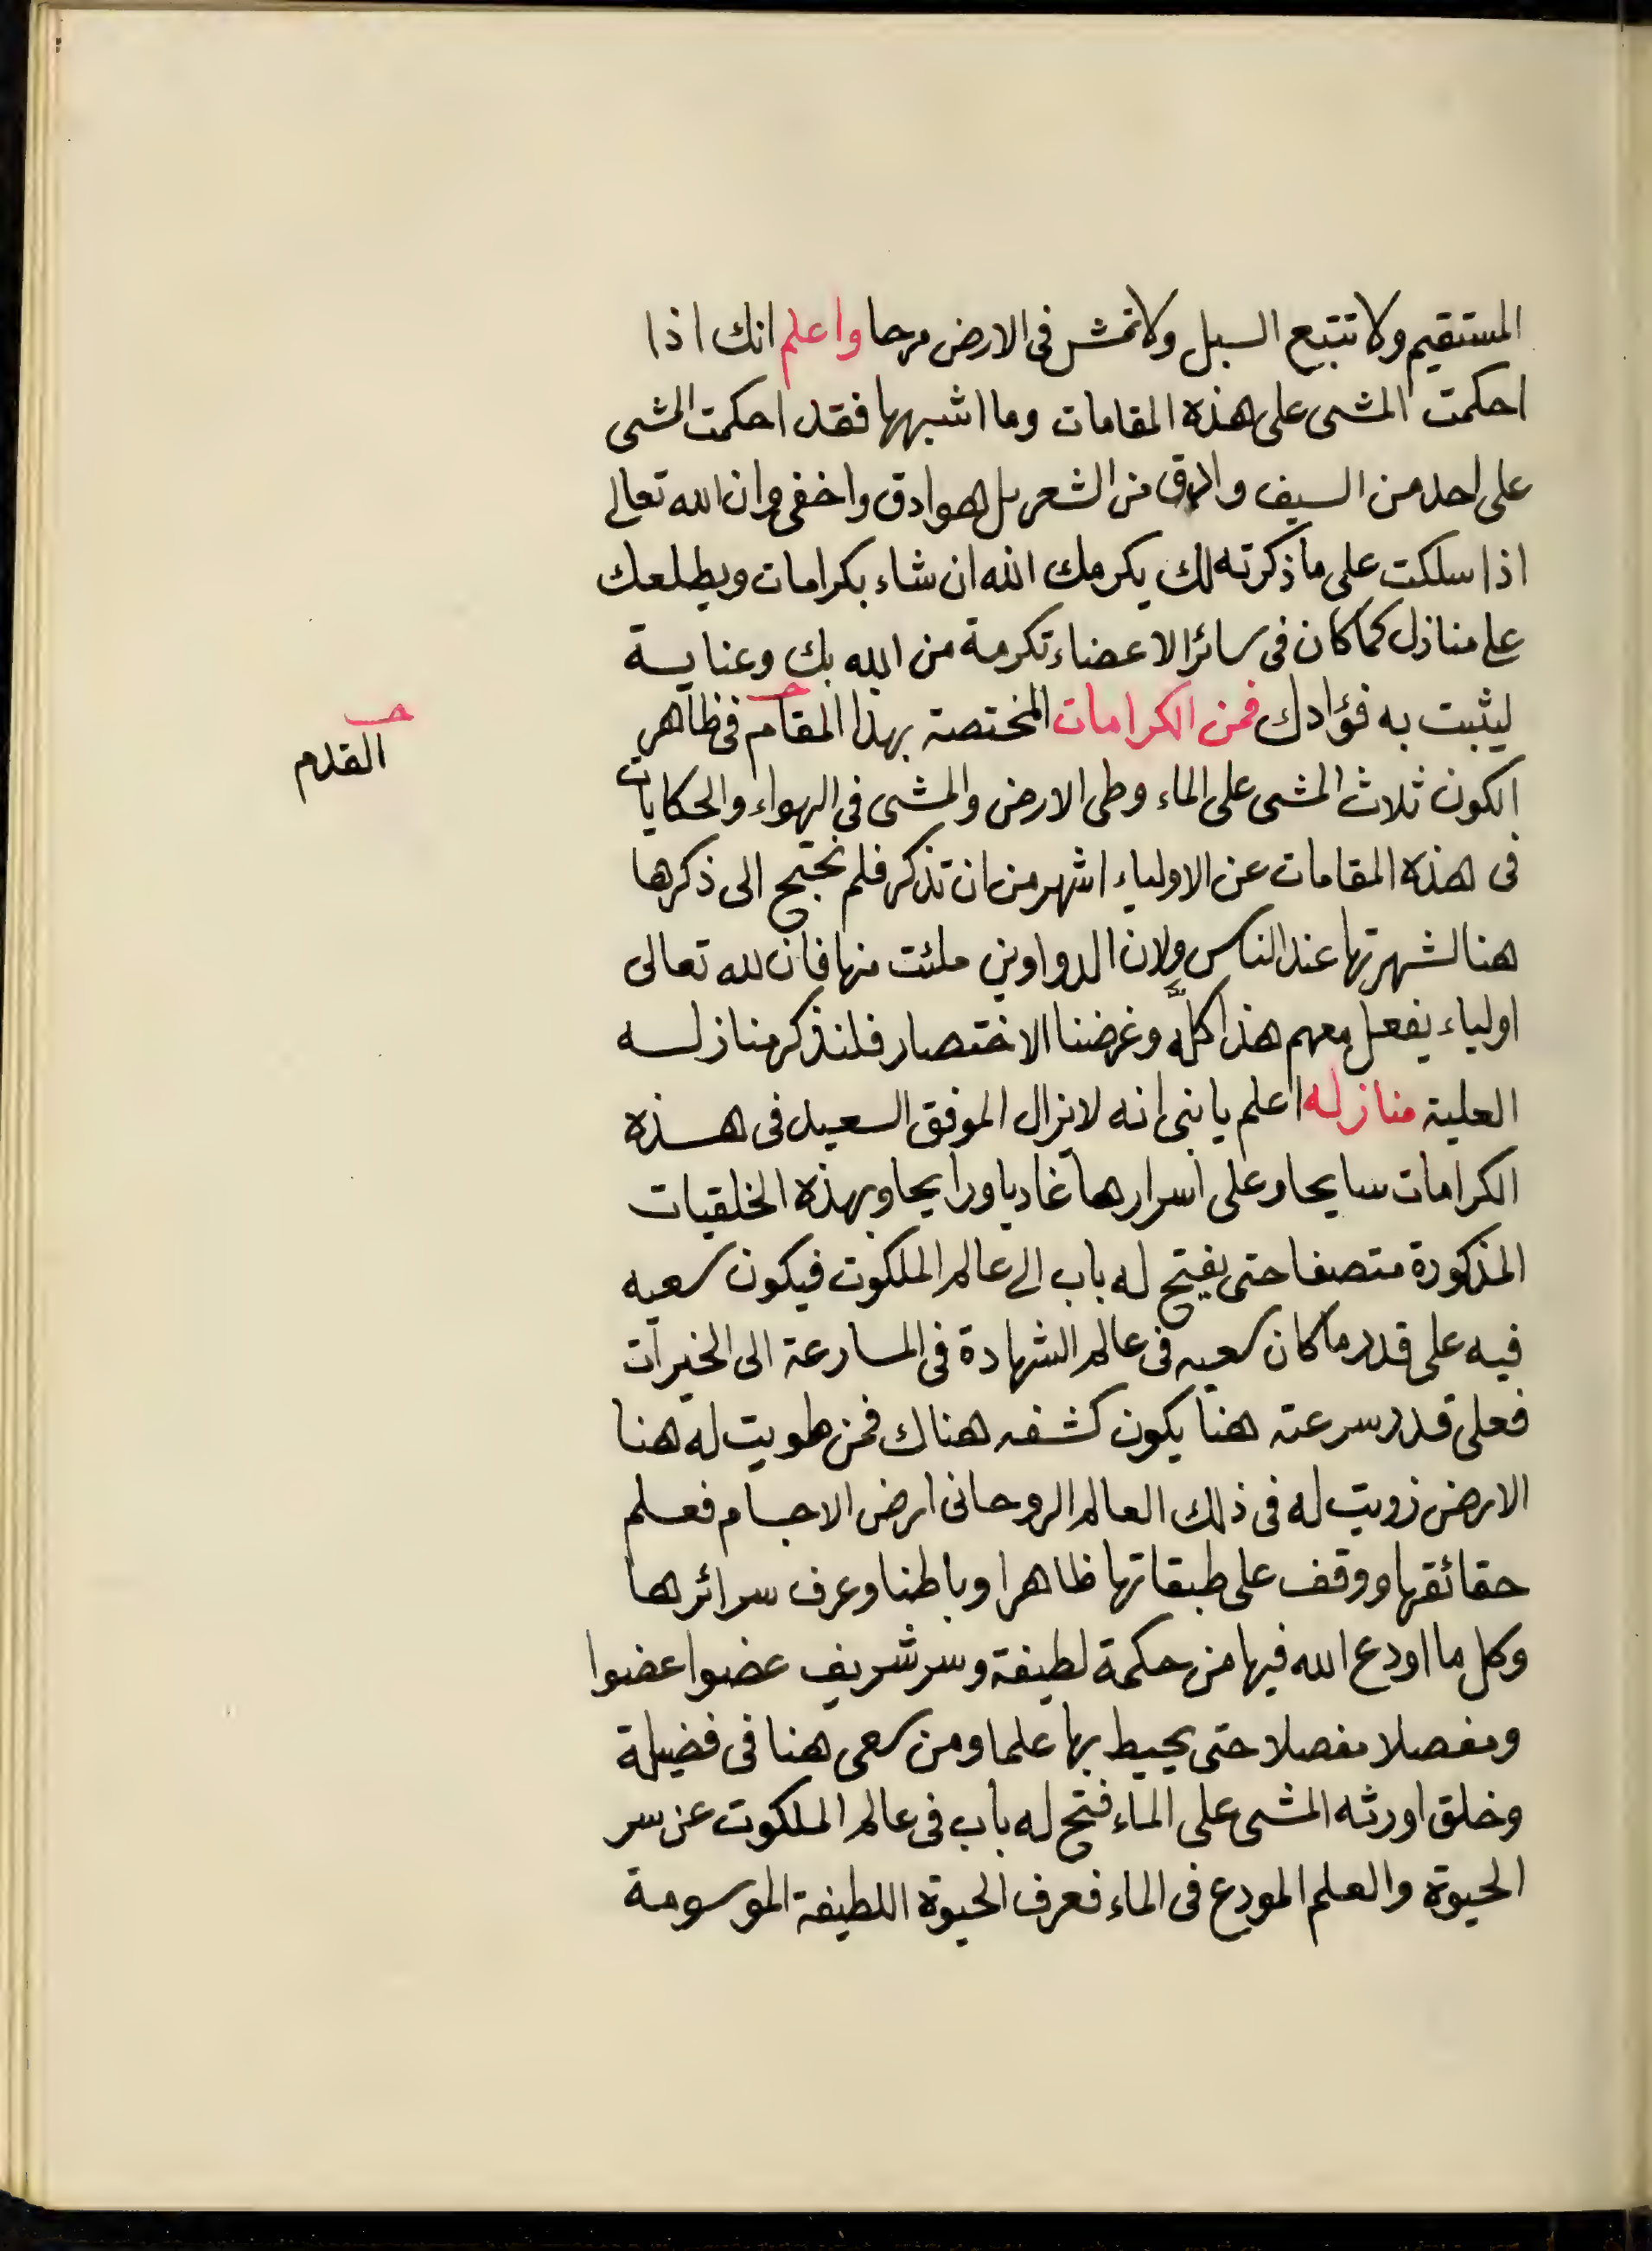 المستقيم ولا تتبع السبل ولا تمش فى الارض مرحا واعلم انك اذا
احكمت المشى على هذه المقامات وما اشبهها فقد احكمت المشى
على احد من السيف وادق من الشعر بل هو ادق واخفى وان الله تعالى
اذا سلكت على ما ذكرته لك يكرمك الله ان شاء بكرامات ويطلعك
على منازل كما كان فى سائر الاعضاء تكرمة من الله بك وعناية
ليثبت به فؤادك فمن الكرامات المختصة بهذا المقام فى ظاهر
القدم
الكون ثلاث المشى على الماء وطى الارض والمشى فى الهواء والحكايات
فى هذه المقامات عن الاولياء اشهر من ان تذكر فلم نحتج الى ذكرها
هنا لشهرتها عند الناس ولان الدواوين ملئت منها فان لله تعالى
اولياء يفعل معهم هذا كله وغرضنا الاختصار فلنذكر منازله
العلية منازله اعلم يا بنى انه لا يزال الموفق السعيد فى هذه
الكرامات سايحا وعلى اسرارها غاديا ورايحا وبهذه الخلقيات
المذكورة متصفا حتى يفتح له باب الى عالم الملكوت فيكون سعيه
فيه على قدر ما كان سعيه فى عالم الشهادة فى المسارعة الى الخيرات
فعلى قدر سرعته هنا يكون كشفه هناك فمن طويت له هنا
الارض زويت له فى ذلك العالم الروحانى ارض الاجسام فعلم
حقائقها ووقف على طبقاتها ظاهرا وباطنا وعرف سرائرها
وكل ما اودع الله فيها من حكمة لطيفة وسر شريف عضوا عضوا
ومفصلا مفصلا حتى يحيط بها علما ومن سعى هنا فى فضيلة
وخلق اورثه المشى على الماء فتح له باب فى عالم الملكوت عن سر
الحيوة والعلم المودع فى الماء فعرف الحيوة اللطيفة الموسومة